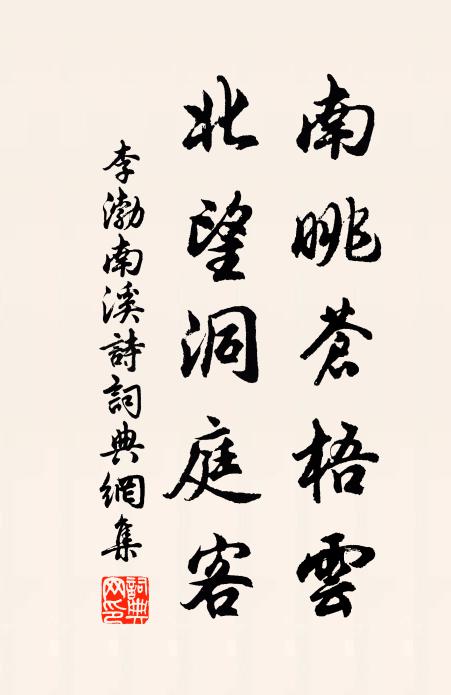 南眺蒼梧雲
北望洞庭客
李渤南溪詩詞典網集
詞典網印